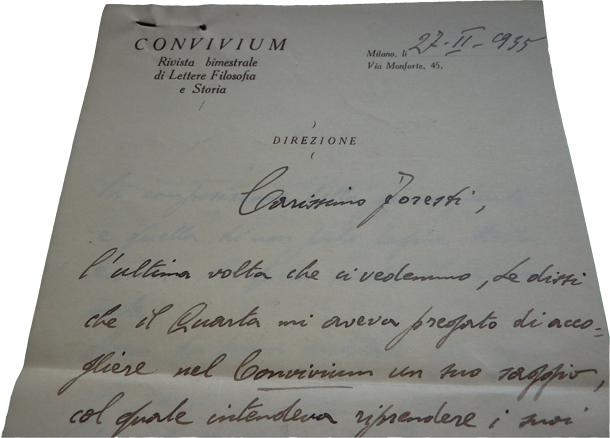 CONVIVIUM
Rivista bimestrale
di Lettere Filosofia
e Storia
Milano, li 27-II-935
Via Monforte, 45.
DIREZIONE
Carissimo Foresti,
l'ultima volta che ci vedemmo, Le dissi
che il Quarta mi aveva pregato di acco=
gliere nel Convivium un suo saggio,
col quale intendeva riprendere i suoi